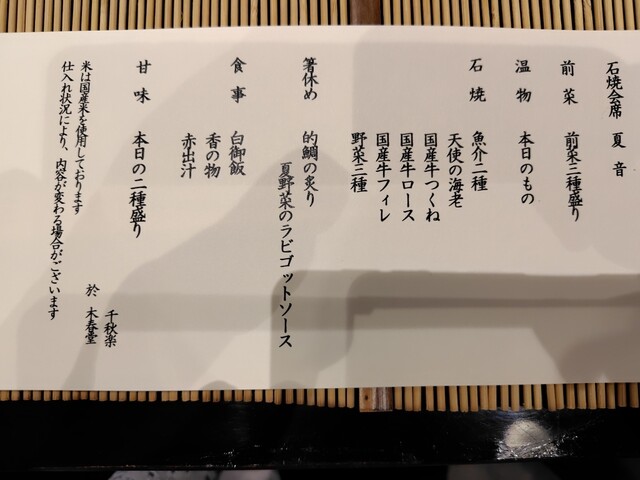 石焼会席 夏音
前菜 前菜三種盛り
温物 本日のもの
石焼 魚介二種
天使の海老
国産牛つくね
国産牛ロース
国産牛フィレ
野菜三種
箸休め 的鯛の炙り
夏野菜のラビゴットソース
食事 白御飯
香の物
赤出汁
甘味 本日の二種盛り
米は国産米を使用しております
仕入れ状況により、内容が変わる場合がございます
千秋楽
於 木春堂